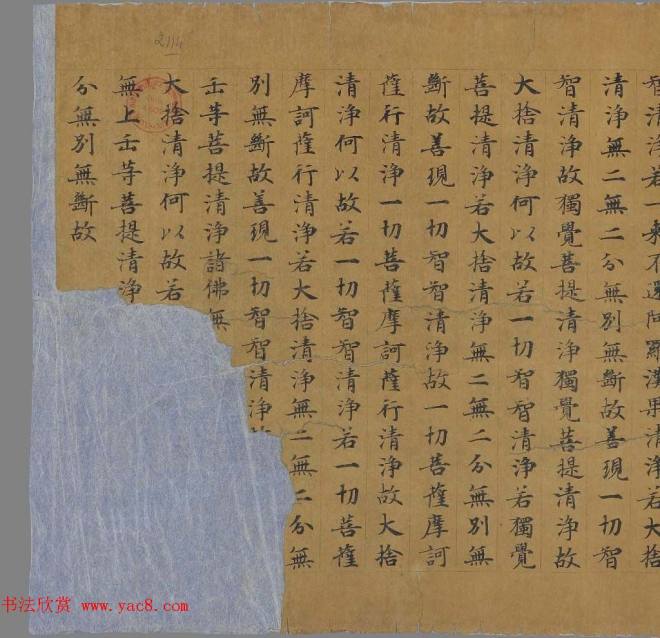 智清淨若一來不還阿羅漢果清淨若大捨
清淨無二無二分無別無斷故善現一切智
智清淨故獨覺菩提清淨獨覺菩提清淨故
大捨清淨何以故若一切智智清淨若獨覺
菩提清淨若大捨清淨無二無二分無別無
斷故善現一切智智清淨故一切菩薩摩訶
薩行清淨一切菩薩摩訶薩行清淨故大捨
清淨何以故若一切智智清淨若一切菩薩
摩訶薩行清淨若大捨清淨無二無二分無
別無斷故善現一切智智清淨
正等菩提清淨諸佛無
大捨清淨何以故若
無上正等菩提清淨
分無別無斷故
2114
书法欣赏 www.yac8.com